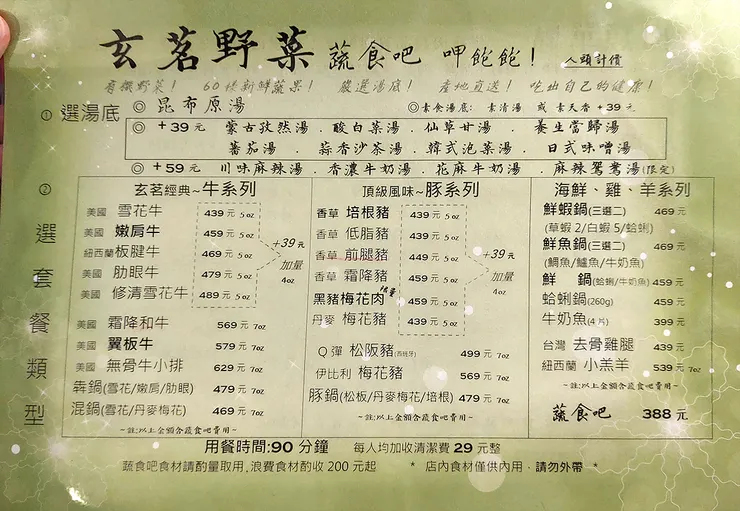 玄茗野菜 蔬食吧 呷飽飽! 人頭計價
有機野菜! 60樣新鮮蔬果! 嚴選湯底! 產地直送! 吃出自己的健康!
① 選湯底
◎ 昆布原湯 ◎素食湯底: 素清湯 或 素天香 +39元
◎ +39元 蒙古孜然湯 . 酸白菜湯 . 仙草甘湯 . 養生當歸湯
蕃茄湯 . 蒜香沙茶湯 . 韓式泡菜湯 . 日式味噌湯
◎ +59元 川味麻辣湯 . 香濃牛奶湯 . 花麻牛奶湯 . 麻辣鴛鴦湯(限定)
② 選套餐類型
玄茗經典~牛系列
美國 雪花牛 439元 5oz
美國 嫩肩牛 459元 5oz
紐西蘭 板腱牛 469元 5oz
美國 肋眼牛 479元 5oz
美國 修清雪花牛 489元 5oz
+39元
加量
4oz
美國 霜降和牛 569元 7oz
美國 翼板牛 579元 7oz
美國 無骨牛小排 629元 7oz
犇鍋(雪花/嫩肩/肋眼) 479元 7oz
混鍋(雪花/丹麥梅花) 469元 7oz
~註:以上金額含蔬食吧費用~
頂級風味~豚系列
香草 培根豬 439元 5oz
香草 低脂豬 439元 5oz
香草 前腿豬 449元 5oz
香草 霜降豬 459元 5oz
黑豬梅花肉 459元 5oz
丹麥 梅花豬 439元 5oz
+39元
加量
4oz
Q彈 松阪豬(西班牙) 499元 7oz
伊比利 梅花豬 569元 7oz
豚鍋(松板/丹麥梅花/培根) 479元 7oz
~註:以上金額含蔬食吧費用~
海鮮、雞、羊系列
鮮蝦鍋(三選二) 469元
(草蝦2/白蝦5/蛤蜊)
鮮魚鍋(三選二) 469元
(鯛魚/鱸魚/牛奶魚)
鮮 鍋(蛤蜊/牛奶魚) 459元
蛤蜊鍋(260g) 459元
牛奶魚(4片) 399元
台灣 去骨雞腿 439元
紐西蘭 小羔羊 539元 7oz
~註:以上金額含蔬食吧費用~
蔬食吧 388元
用餐時間:90分鐘 每人均加收清潔費29元整
蔬食吧食材請酌量取用,浪費食材酌收200元起 * 店內食材僅供內用、請勿外帶 *